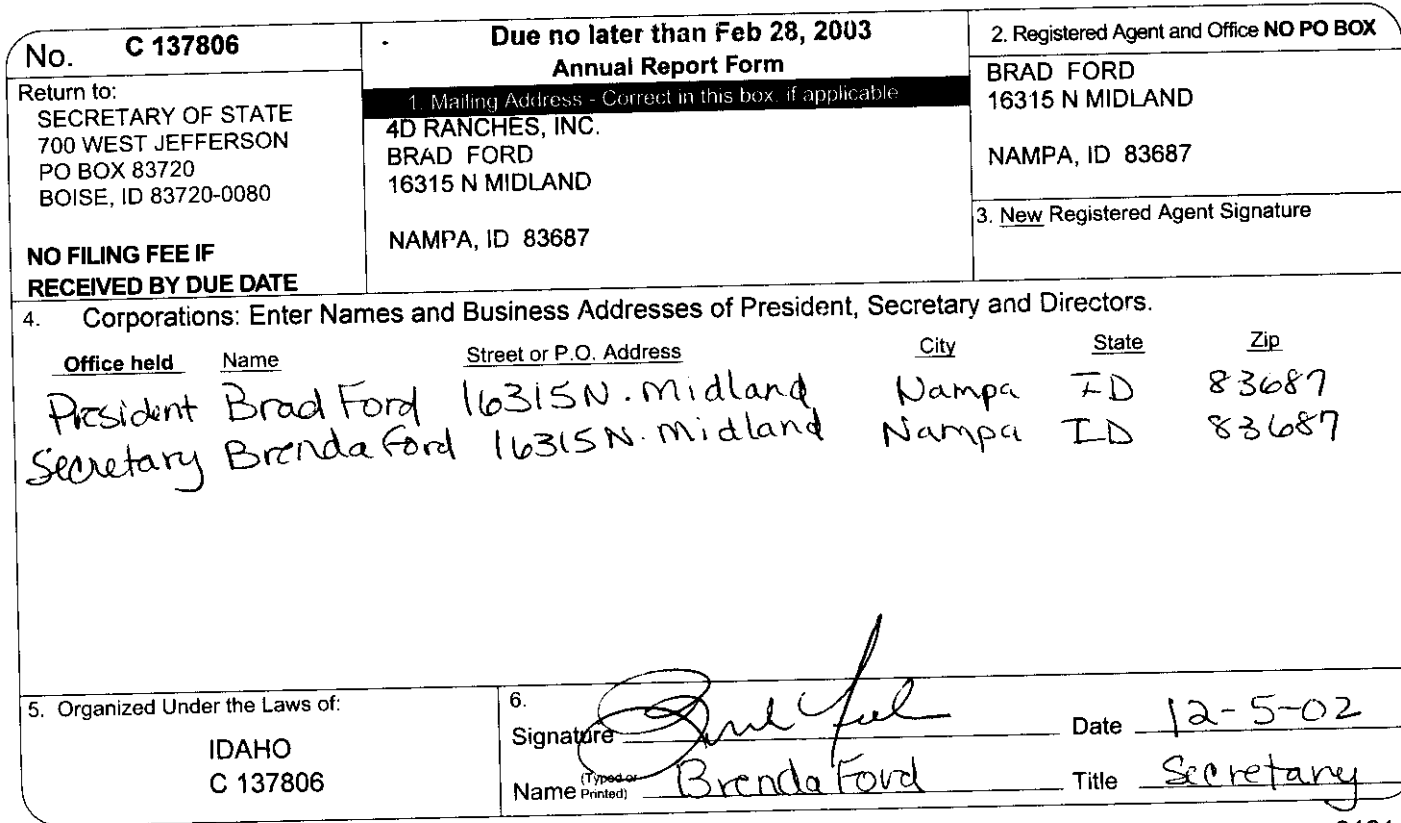 No. C 137806
Return to:
SECRETARY OF STATE
700 WEST JEFFERSON
PO BOX 83720
BOISE, ID 83720-0080
NO FILING FEE IF
RECEIVED BY DUE DATE
Due no later than Feb 28, 2003
Annual Report Form
1. Mailing Address - Correct in this box, if applicable
4D RANCHES, INC.
BRAD FORD
16315 N MIDLAND
NAMPA, ID 83687
2. Registered Agent and Office NO PO BOX
BRAD FORD
16315 N MIDLAND
NAMPA, ID 83687
3. New Registered Agent Signature
4. Corporations: Enter Names and Business Addresses of President, Secretary and Directors.
Office held Name Street or P.O. Address City State Zip
President Brad Ford 16315 N. Midland Nampa ID 83687
Secretary Brenda Ford 16315 N. Midland Nampa ID 83687
5. Organized Under the Laws of:
IDAHO
C 137806
6.
Signature Date 12-5-02
Name (Typed or Printed) Brenda Ford Title Secretary